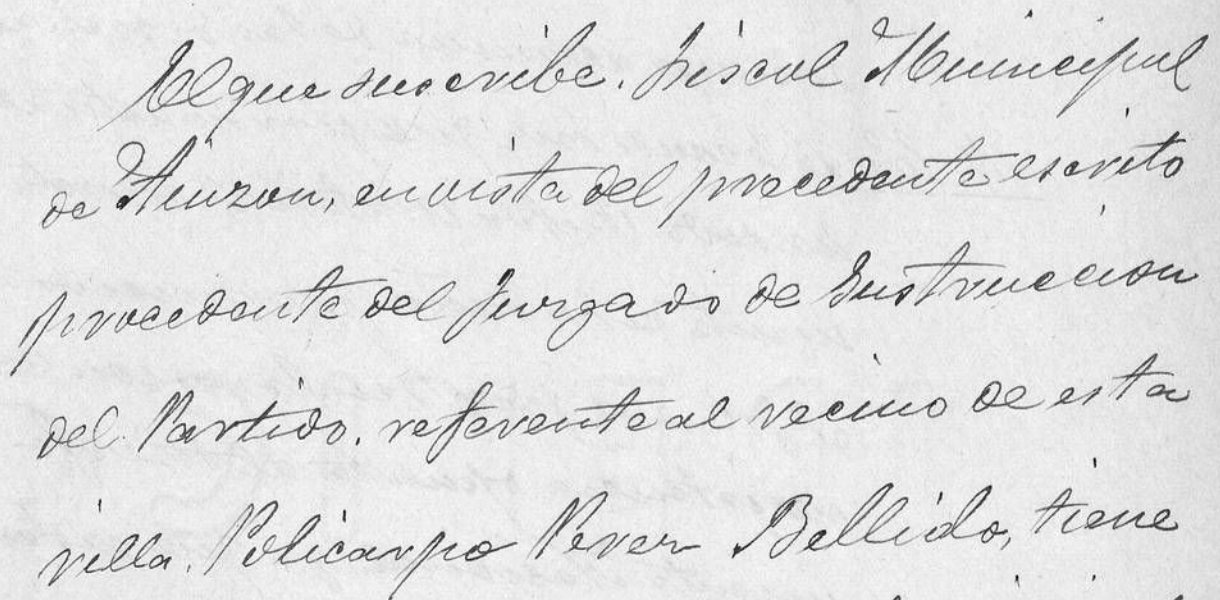 El que suscribe. Fiscal Municipal
de Ainzon, en vista del precedente escrito
procedente del Juzgado de Instruccion
del Partido. referente al vecino de esta
villa. Policarpo Perez Bellido, tiene